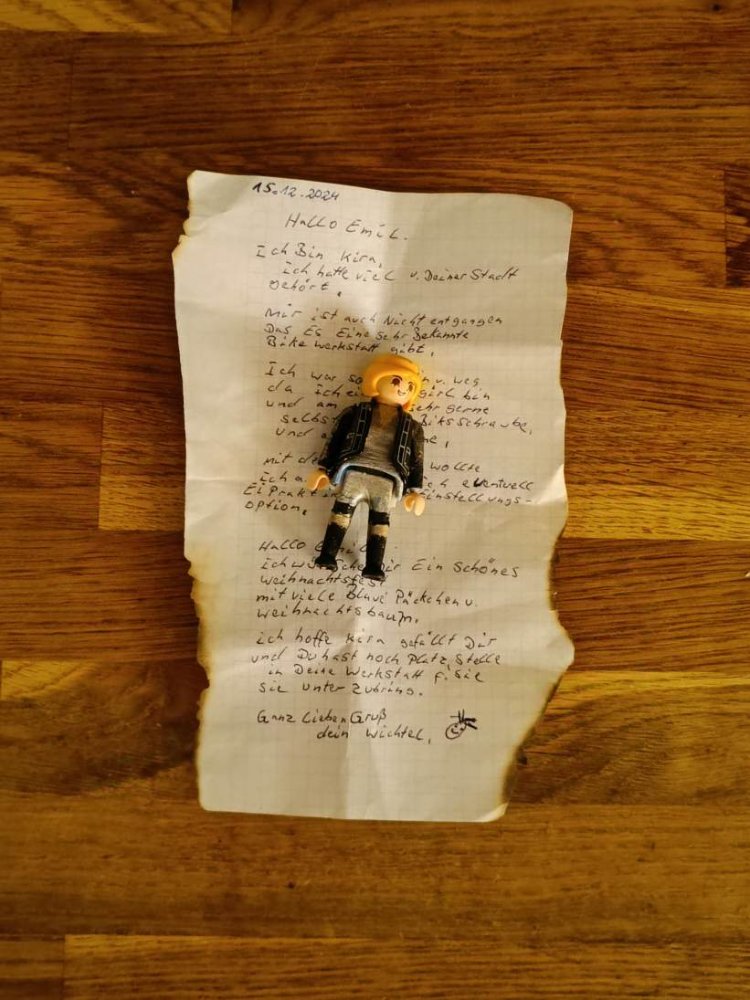 15.12.2024
Hallo Emil.
Ich Bin Kira,
ich hatte viel v. Deiner Stadt
gehört.
Mir ist auch Nicht entgangen
Das Es Eine sehr Bekannte
Bike werkstatt gibt,
Ich war so n v. weg,
da Ich ei girl bin
und am sehr gerne
selbst Biks schraube,
und
mit de wollte
Ich eventuell
Ei Prakt Einstellungs-
option.
Hallo
Ich wünsche Dir Ein Schönes
Weihnachtsfest
mit viele Päckchen u.
weihnachtsbaum.
ich hoffe Kira gefällt Dir
und Du hast noch Platz, stelle
in Deine Werkstatt f. sie
sie unter zubring.
Ganz Lieben Gruß
dein Wichtel,